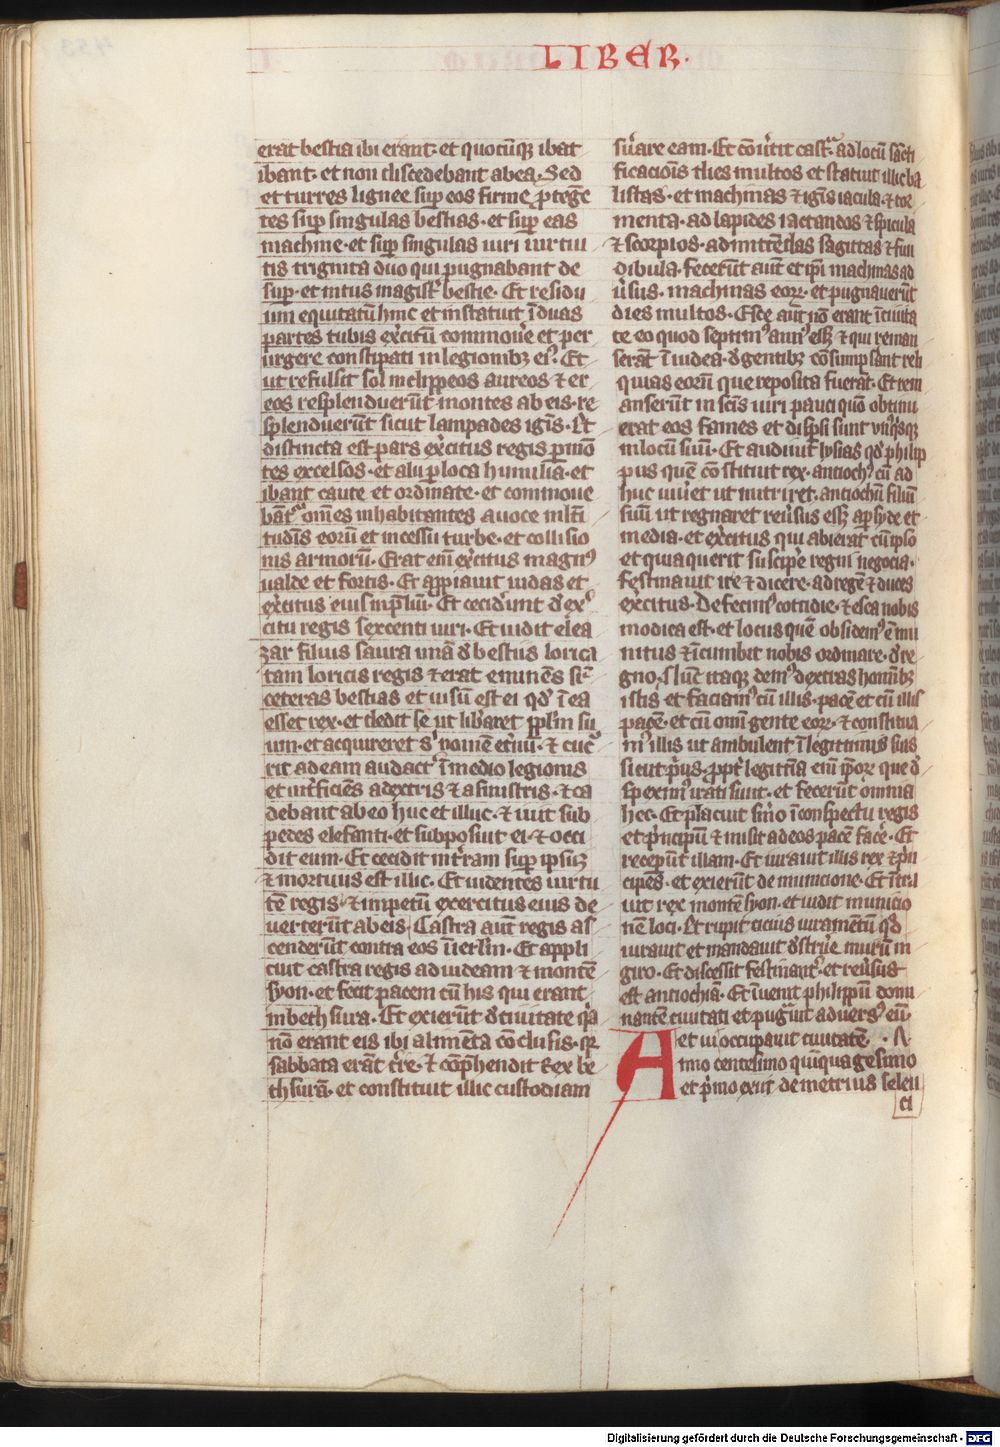 LIBER.
erat bestia ibi erant· et quocūqꝫ ibat
ibant· et non discedebant ab ea· Sed
et turres lignee suꝑ eos firme ꝓtege
tes suꝑ singulas bestias· et suꝑ eas
machine· et suꝑ singulas uiri uirtu
tis triginta duo qui pugnabant de
suꝑ· et intus magist̄ bestie· Et residu
um equitatum hinc et inde statuit ī duas
partes tubis ex̾citū commoue̾ et per
urgere constipati in legionibꝫ eiꝰ· Et
ut refulsit sol in clippeos aureos ⁊ er
eos resplenduerūt montes ab eis· re
splenduerūt sicut lampades ignis· Et
distincta est pars ex̾citus regis ꝑ mō
tes excelsos· et alia ꝑ loca humilia· et
ibant caute et ordinate· et commoue
banť omēs inhabitantes a uoce mlti
tudīs eorū et incessu turbe· et collisio
nis armorū· Erat enī ex̾citus magnꝰ
ualde et fortis· Et appiauit iudas et
ex̾citus eius in pliū· Et cecider̄unt d̾ ex̾
citu regis sexcenti uiri· Et uidit elea
zar filius saura unā d̾ bestiis lorica
tam loricis regis ⁊ erat eminēs sup̄
ceteras bestias et uisū est ei qd̾ ī ea
esset rex· et dedit se ut lib̾aret pplm̄ su
um· et acquireret s̾ nomē et̾nū· ⁊ cucr̄
rit ad eam audact̾ ī medio legionis
et int̾ficiēs a dextris ⁊ a sinistris· ⁊ ca
debant ab eo huc et illuc· ⁊ iuit sub
pedes elefanti· et subposuit ei· ⁊ occi
dit eum· Et cecidit in t̾ram suꝑ ipsū
⁊ mortuus est illic· Et uidentes uirtu
tē regis· ⁊ impetū exercitus eius de
uerterūt ab eis· Castra aūt regis as
cenderūt contra eos ī ierlm̄· Et appli
cuit castra regis ad iudeam ⁊ montē
syon· et fecit pacem cū his qui erant
in bethsura· Et exierūt d̾ ciuitate qa
nō erant eis ibi alimēta cōclusis· qr
sabbata erāt t̾re· ⁊ cōp̄hendit rex be
thsurā· et constituit illic custodiam
s̾uare eam· Et cōu̾tit castra̾ ad locū sc̄ti
ficacionis dies multos et statuit illic ba
listas· et machinas ⁊ ignis iacula· ⁊ tor
menta· ad lapides iactandos ⁊ spicula
⁊ scorpios· ad mittēdas sagittas ⁊ fun
dibula· fecerūt aūt et ipi machinas ad
u̾sus· machinas eorꝝ· et pugnauerūt
dies multos· Esce aūt nō erant ī ciuita
te eo quod septimꝰ annꝰ essꝫ ⁊ qui reman
serāt ī iudea· d̾ gentibꝫ cōsumpserant reli
quias eorū que reposita fuerāt· Et rem
anserūt in scīs uiri pauci quō obtinu
erat eos fames et disp̄si sunt vnꝰqsqꝫ
in locū suū· Et audiuit lysias qd̾ philip
pus quē cōstituit rex· antiochꝰ cū ad
huc uiu̾et ut nutriret· antiochū filium
suū ut regnaret reu̾sus essꝫ a p̄syde et
media· et ex̾citus qui abierat cū ipso
et quia querit suscip̄e regni negocia·
festinauit ire ⁊ dicere· ad regē ⁊ duces
ex̾citus· Defecimꝰ cottidie· ⁊ esca nobis
modica est· et locus quē obsidemꝰ ē mu
nitus ⁊ īcumbit nobis ordinare· d̾ re
gno· nūc itaqꝫ demꝰ dextras hominibꝫ
istis et faciamꝰ cū illis· pacē et cū illis
pacē· et cū omī gente eorꝝ· ⁊ constitua
mꝰ illis ut ambulent ī legitimis suis
sicut p̄us· ꝓpt̾ legitīa enī ip̄orꝝ que d̾
speximꝰ irati sunt· et fecerūt omnia
hec· Et placuit s̾mo ī conspectu regis
et p̄ncipū ⁊ misit ad eos pacē face̾· Et
receperūt illam· Et iurauit illis rex ⁊ p̄n
cipes· et exierūt de municione· Et ītra
uit rex montē syon· et uidit municio
nē loci· Et rupit cicius iuramētū qd̾
iurauit et mandauit d̾stru̾e murū in
giro· Et discessit festinant̾· et reu̾sus
est antiochiā· Et īuenit philippū domi
nantē ciuitati et pugnauit aduersꝰ eū·
et ui occupauit ciuitatē· A
Anno centesimo quinquagesimo
et p̄mo exiit demetrius seleu
ci
Digitalisierung gefördert durch die Deutsche Forschungsgemeinschaft - DFG